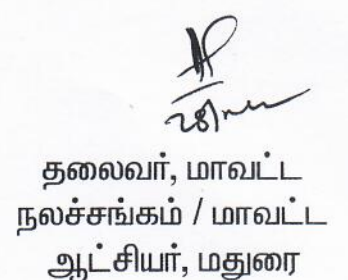 தலைவர், மாவட்ட
நலச்சங்கம் / மாவட்ட
ஆட்சியர், மதுரை